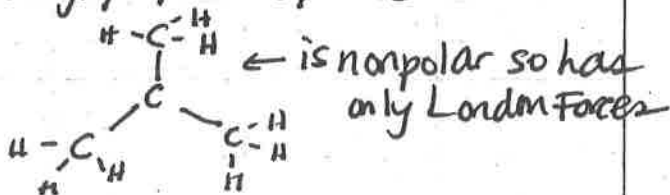 H
H - C - H
← is nonpolar so has
only London Forces
C
H - C
C - H
H
H
H
H